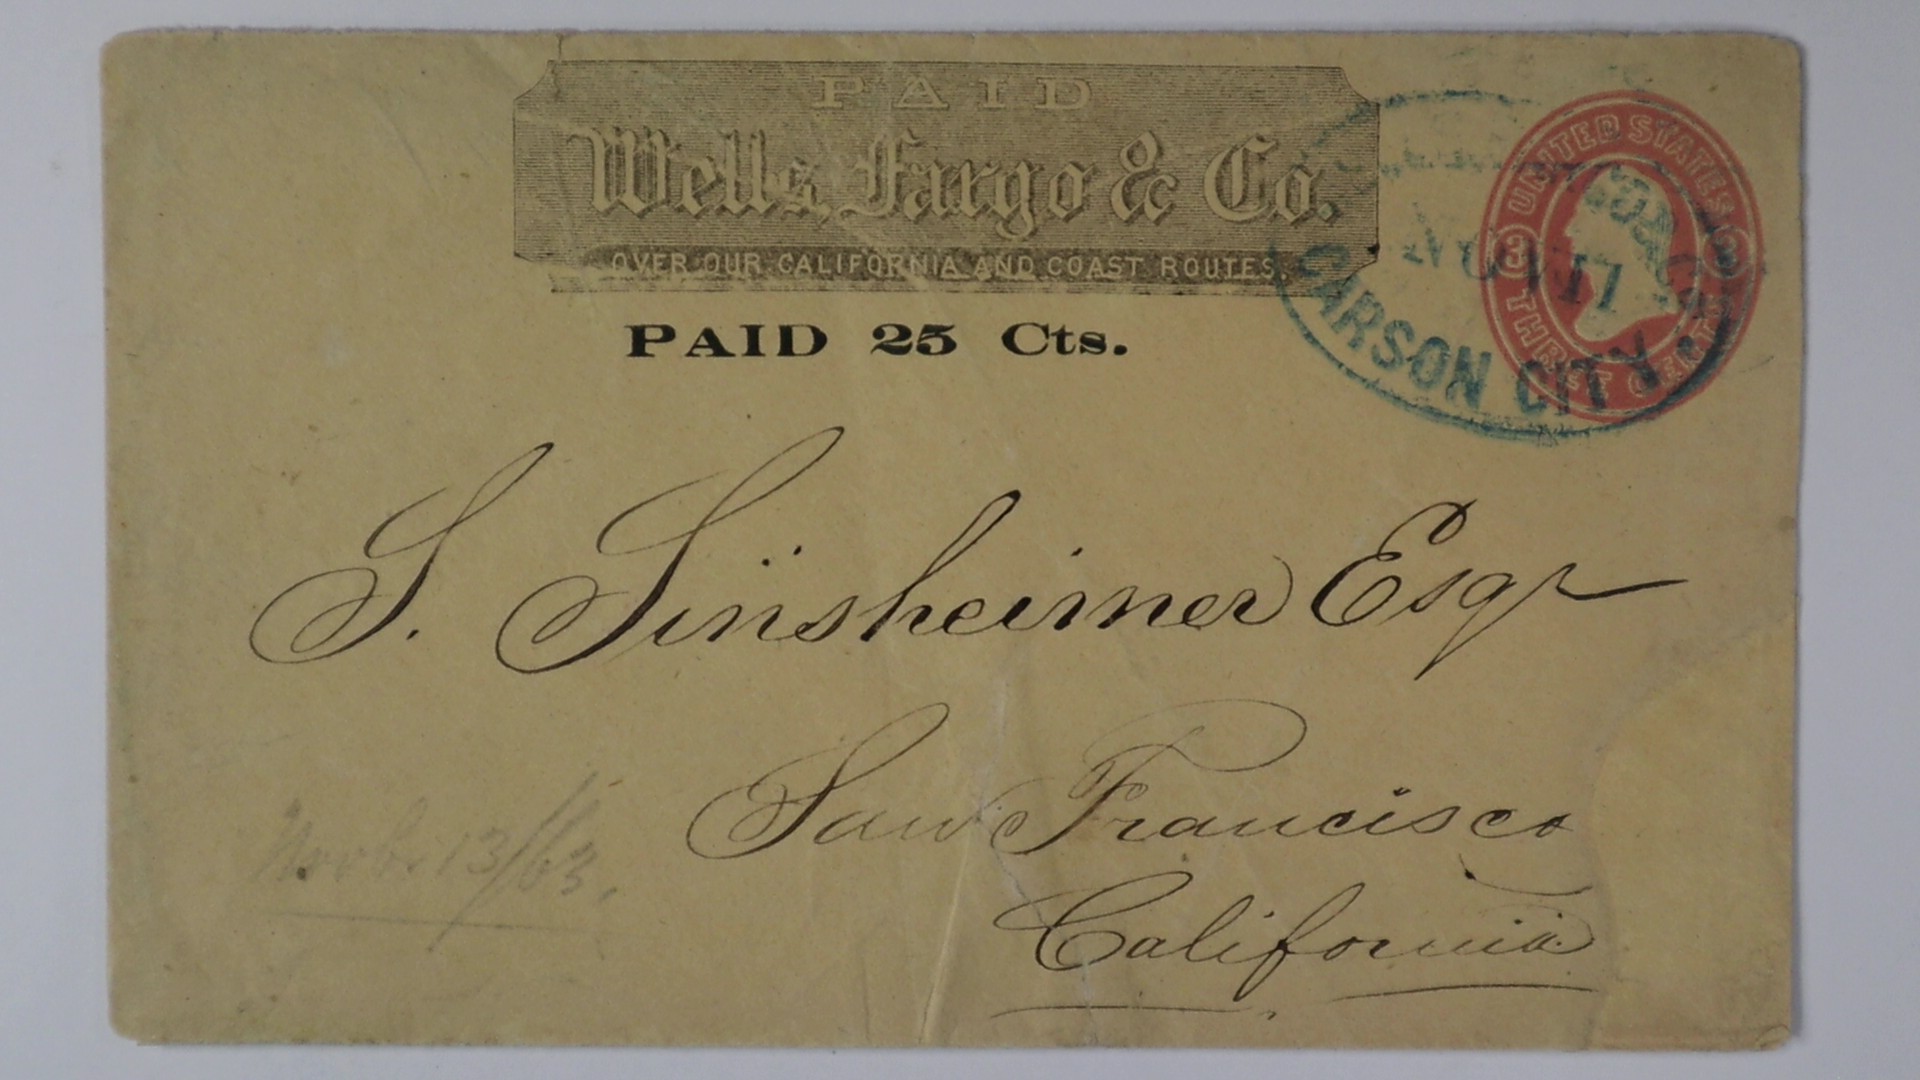 PAID
Wells, Fargo & Co.
OVER OUR CALIFORNIA AND COAST ROUTES.
PAID 25 Cts.
UNITED STATES
3 3
THREE CENTS
& CO.
NOV 17
CARSON CITY
S. Sinsheimer Esqr
San Francisco
California
Novbr 13/63.